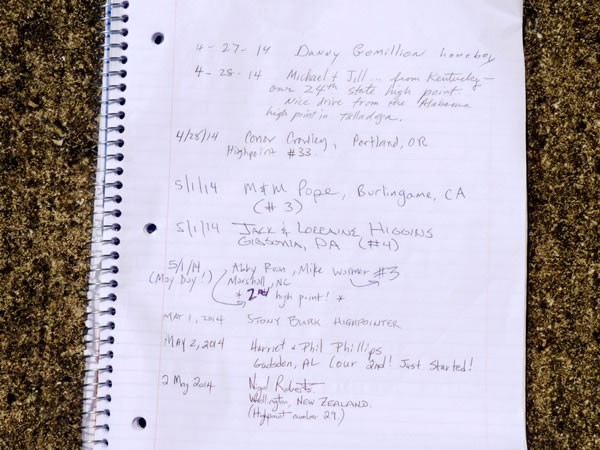 4-27-14 Danny Gomillion homeboy
4-28-14 Michael & Jill... from Kentucky-
our 24th state high point.
Nice drive from the Alabama
high point in Talladega.
4/28/14 Conor Crowley, Portland, OR
Highpoint #33.
5/1/14 M&M Pope, Burlingame, CA
(#3)
5/1/14 JACK & LORRAINE HIGGINS
GIBSONIA, PA (#4)
5/1/14 Abby Roan, Mike Wurmer #3
(May Day!) Marshall, NC
* 2nd high point! *
MAY 1, 2014 STONY BURK HIGHPOINTER
MAY 2, 2014 Harriet & Phil Phillips
Gadsden, AL (our 2nd! Just Started!
2 May 2014 Nigel Roberts.
Wellington, NEW ZEALAND.
(Highpoint number 29)